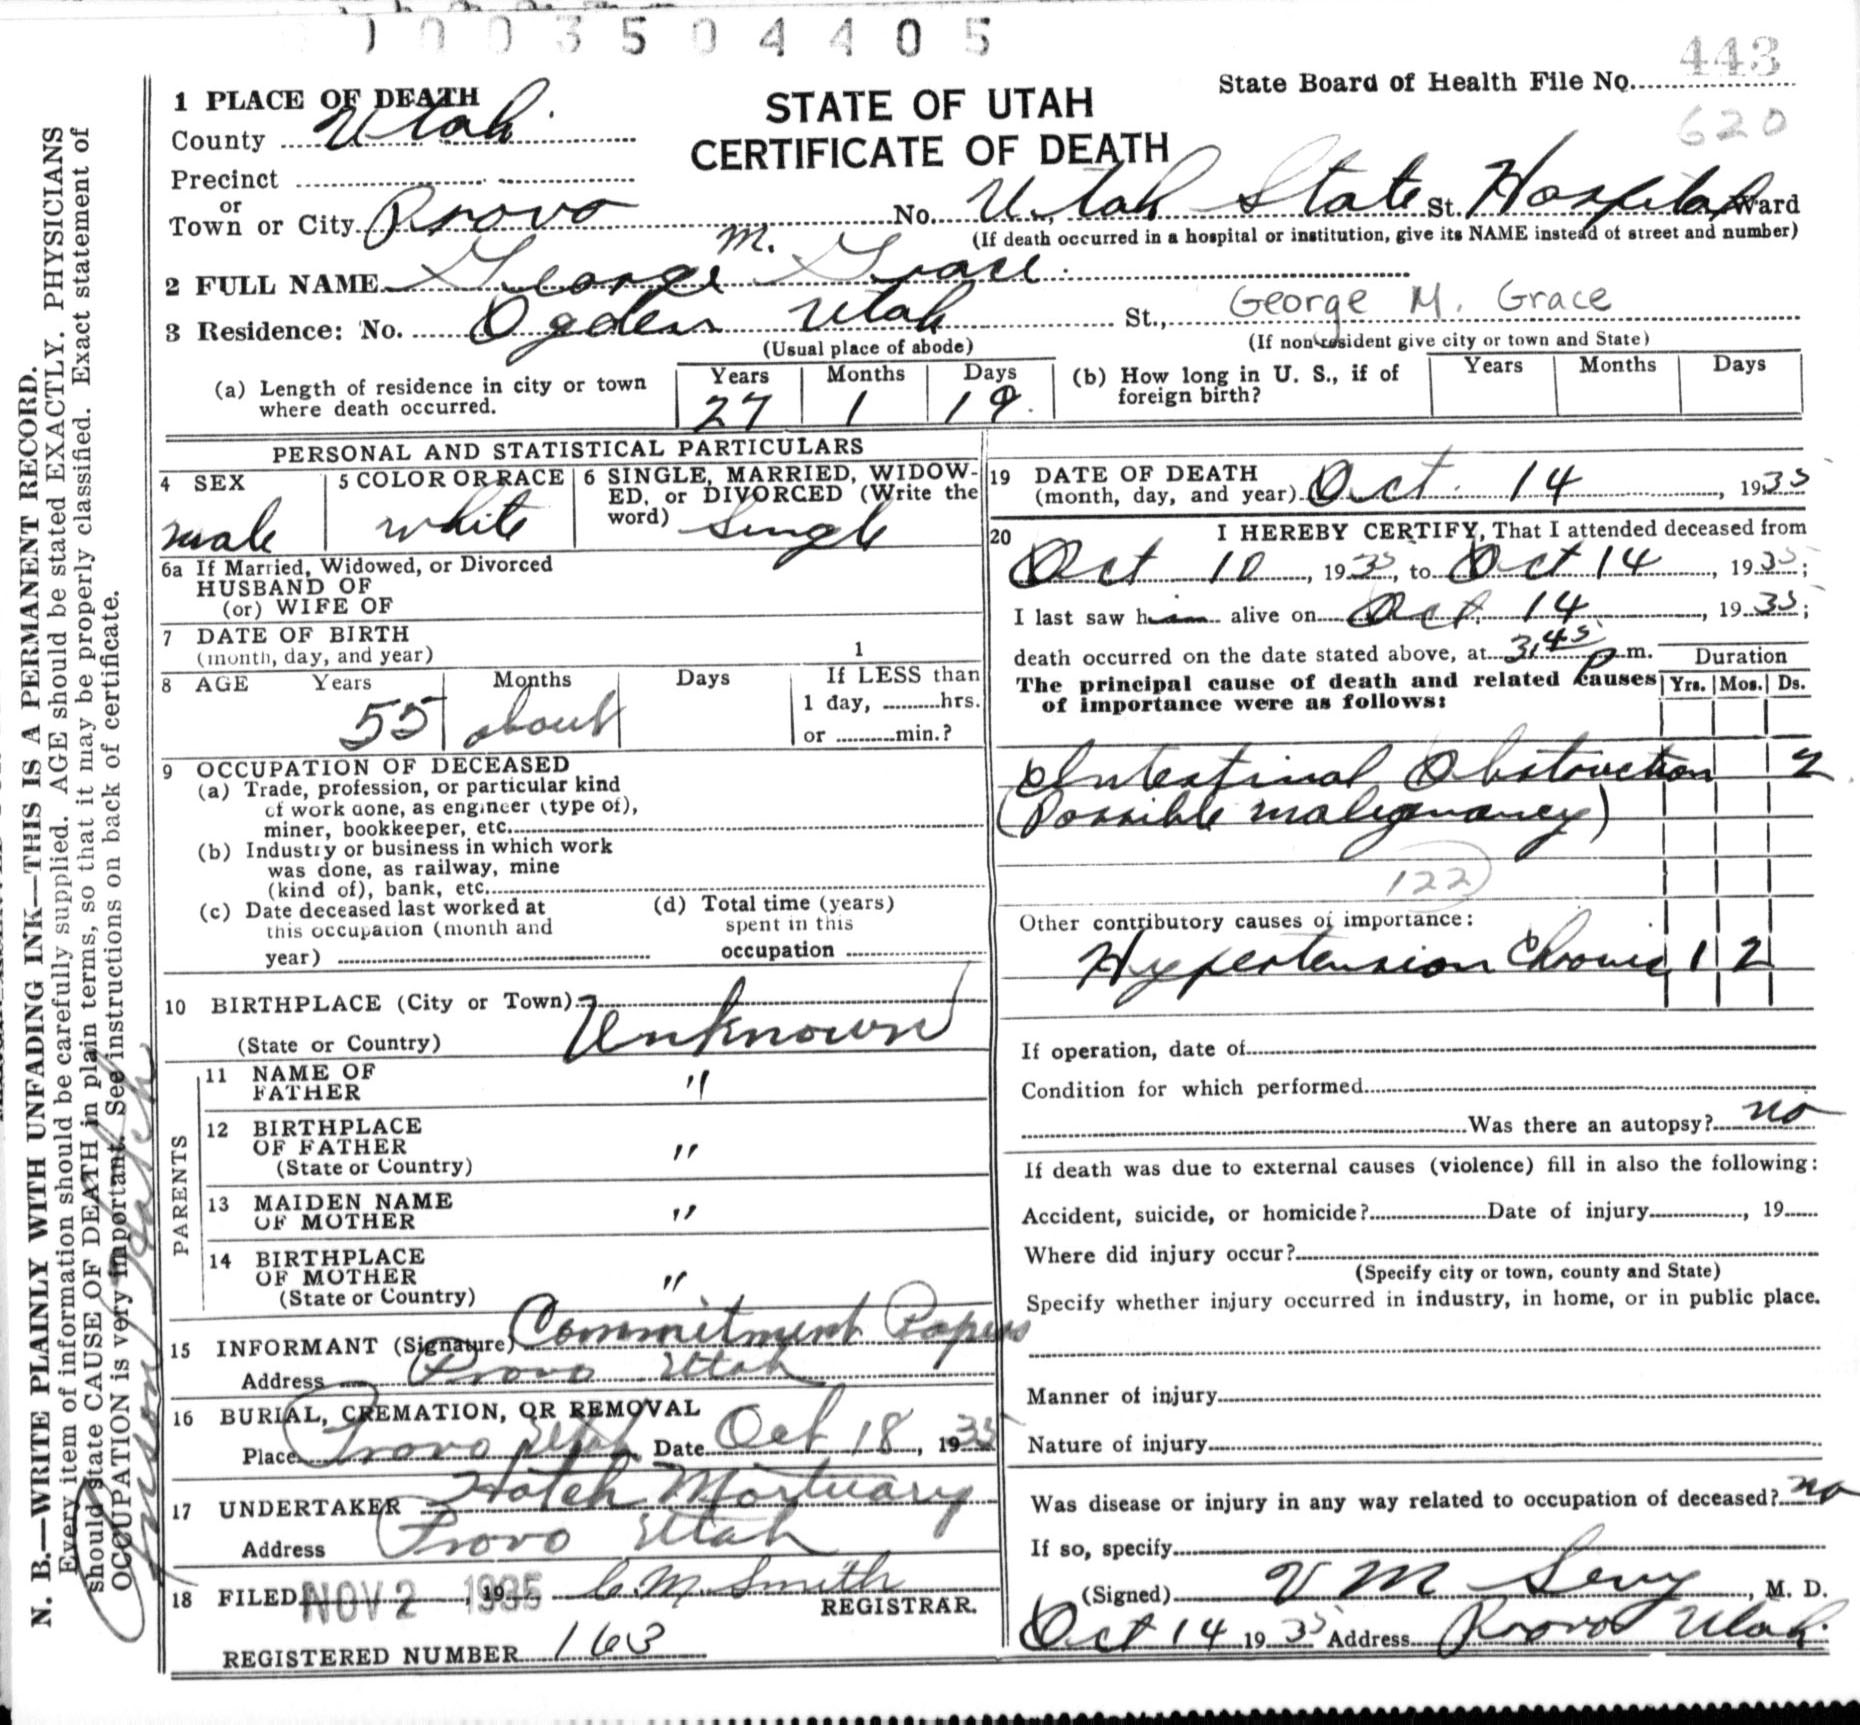 1003504405
443
State Board of Health File No.
620
STATE OF UTAH
CERTIFICATE OF DEATH
1 PLACE OF DEATH
County Utah
Precinct
or
Town or City Provo No. Utah State St. Hospital Ward
(If death occurred in a hospital or institution, give its NAME instead of street and number)
2 FULL NAME George M. Grace
George M. Grace
3 Residence: No. Ogden Utah St.,
(Usual place of abode) (If nonresident give city or town and State)
(a) Length of residence in city or town where death occurred. Years 27 Months 1 Days 19
(b) How long in U. S., if of foreign birth? Years Months Days
PERSONAL AND STATISTICAL PARTICULARS
4 SEX male
5 COLOR OR RACE white
6 SINGLE, MARRIED, WIDOWED, or DIVORCED (Write the word) Single
6a If Married, Widowed, or Divorced
HUSBAND OF
(or) WIFE OF
7 DATE OF BIRTH
(month, day, and year) 1
8 AGE Years 55 Months about Days If LESS than
1 day, hrs.
or min.?
9 OCCUPATION OF DECEASED
(a) Trade, profession, or particular kind
of work done, as engineer (type of),
miner, bookkeeper, etc.
(b) Industry or business in which work
was done, as railway, mine
(kind of), bank, etc.
(c) Date deceased last worked at
this occupation (month and
year)
(d) Total time (years)
spent in this
occupation
10 BIRTHPLACE (City or Town) Unknown
(State or Country)
PARENTS
11 NAME OF
FATHER "
12 BIRTHPLACE
OF FATHER "
(State or Country)
13 MAIDEN NAME
OF MOTHER "
14 BIRTHPLACE
OF MOTHER "
(State or Country)
15 INFORMANT (Signature) Commitment Papers
Address Provo Utah
16 BURIAL, CREMATION, OR REMOVAL
Place Provo Utah Date Oct 18, 1935
17 UNDERTAKER Hatch Mortuary
Address Provo Utah
18 FILED NOV 2, 1935 C. M. Smith
REGISTRAR.
REGISTERED NUMBER 163
19 DATE OF DEATH
(month, day, and year) Oct. 14, 1935
20 I HEREBY CERTIFY, That I attended deceased from
Oct 10, 1935, to Oct 14, 1935;
I last saw him alive on Oct. 14, 1935;
death occurred on the date stated above, at 3:45 p m.
Duration
The principal cause of death and related causes Yrs. Mos. Ds.
of importance were as follows:
Intestinal Obstruction 2
(Possible malignancy)
122
Other contributory causes of importance:
Hypertension Chronic 1 2
If operation, date of
Condition for which performed
Was there an autopsy? no
If death was due to external causes (violence) fill in also the following:
Accident, suicide, or homicide? Date of injury, 19
Where did injury occur?
(Specify city or town, county and State)
Specify whether injury occurred in industry, in home, or in public place.
Manner of injury
Nature of injury
Was disease or injury in any way related to occupation of deceased? no
If so, specify
(Signed) V M Sevy, M. D.
Oct 14 1935 Address Provo Utah.
N. B.—WRITE PLAINLY WITH UNFADING INK—THIS IS A PERMANENT RECORD.
Every item of information should be carefully supplied. AGE should be stated EXACTLY. PHYSICIANS
should state CAUSE OF DEATH in plain terms, so that it may be properly classified. Exact statement of
OCCUPATION is very important. See instructions on back of certificate.